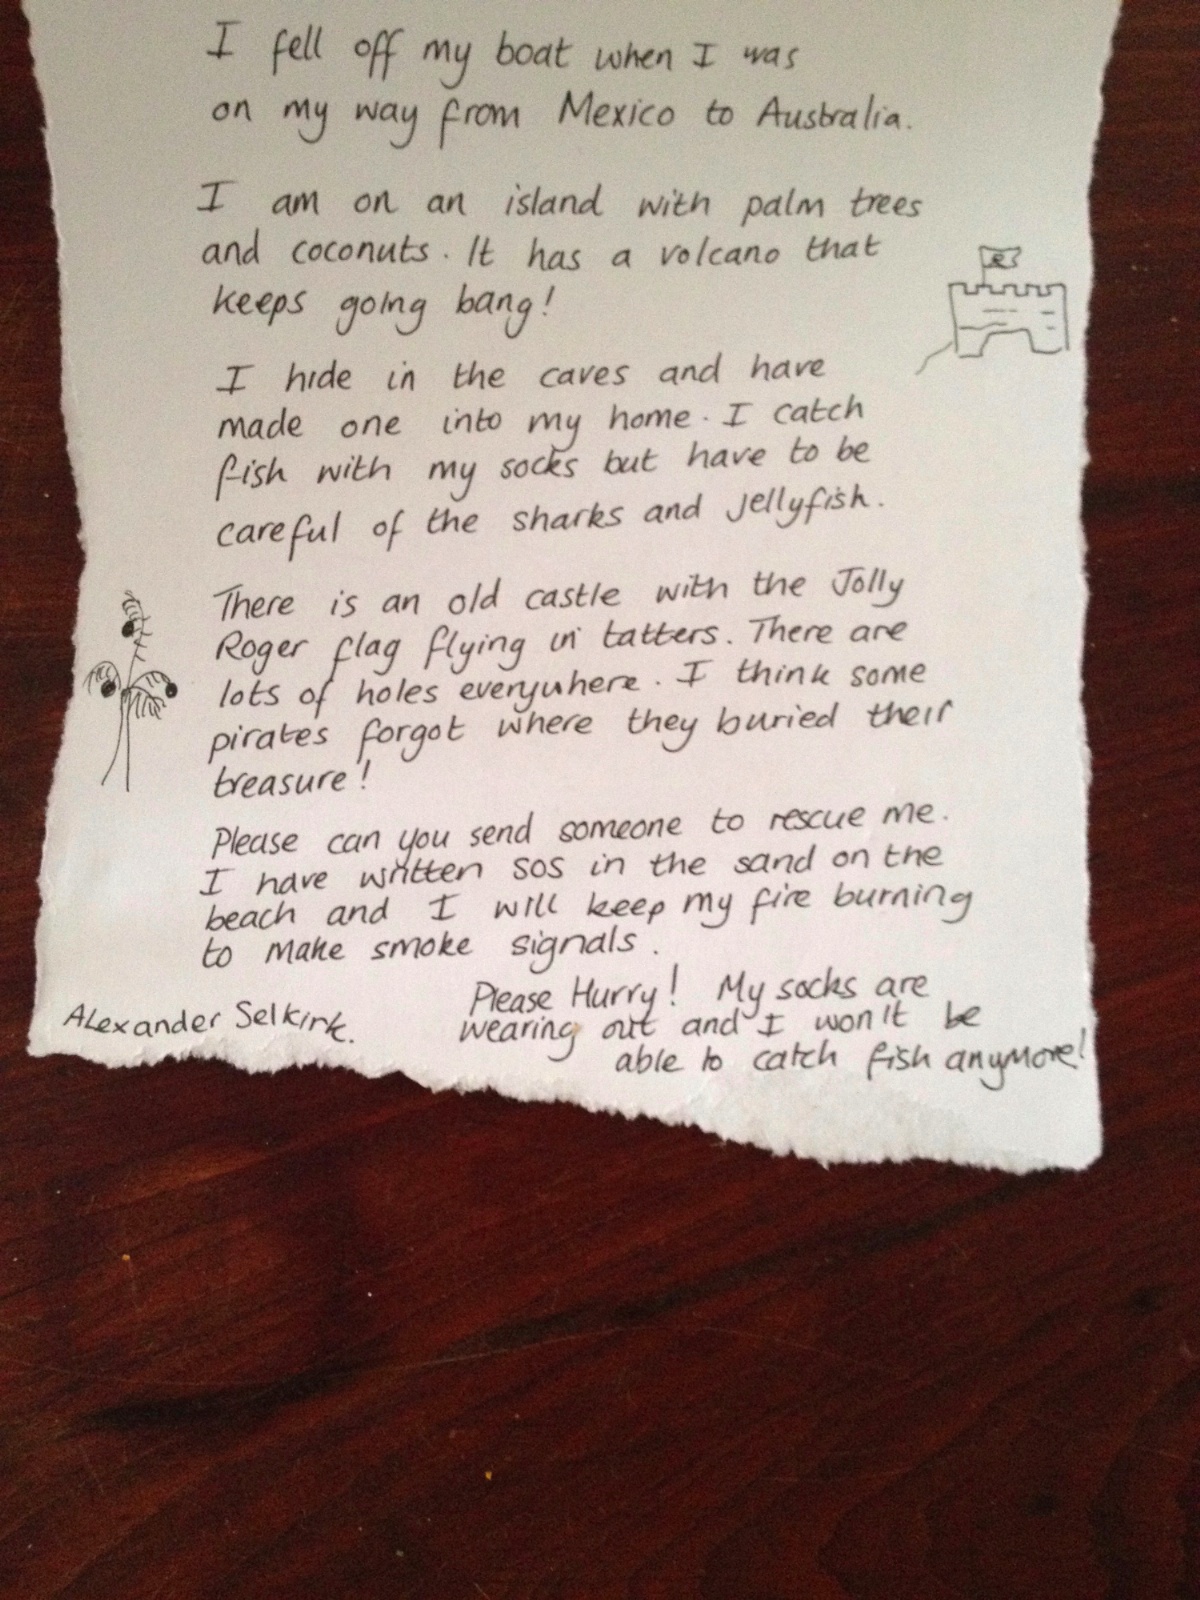 I fell off my boat when I was
on my way from Mexico to Australia.
I am on an island with palm trees
and coconuts. It has a volcano that
keeps going bang!
I hide in the caves and have
made one into my home. I catch
fish with my socks but have to be
careful of the sharks and jellyfish.
There is an old castle with the Jolly
Roger flag flying in tatters. There are
lots of holes everywhere. I think some
pirates forgot where they buried their
treasure!
Please can you send someone to rescue me.
I have written SOS in the sand on the
beach and I will keep my fire burning
to make smoke signals.
Please Hurry! My socks are
wearing out and I won't be
able to catch fish anymore!
Alexander Selkirk.